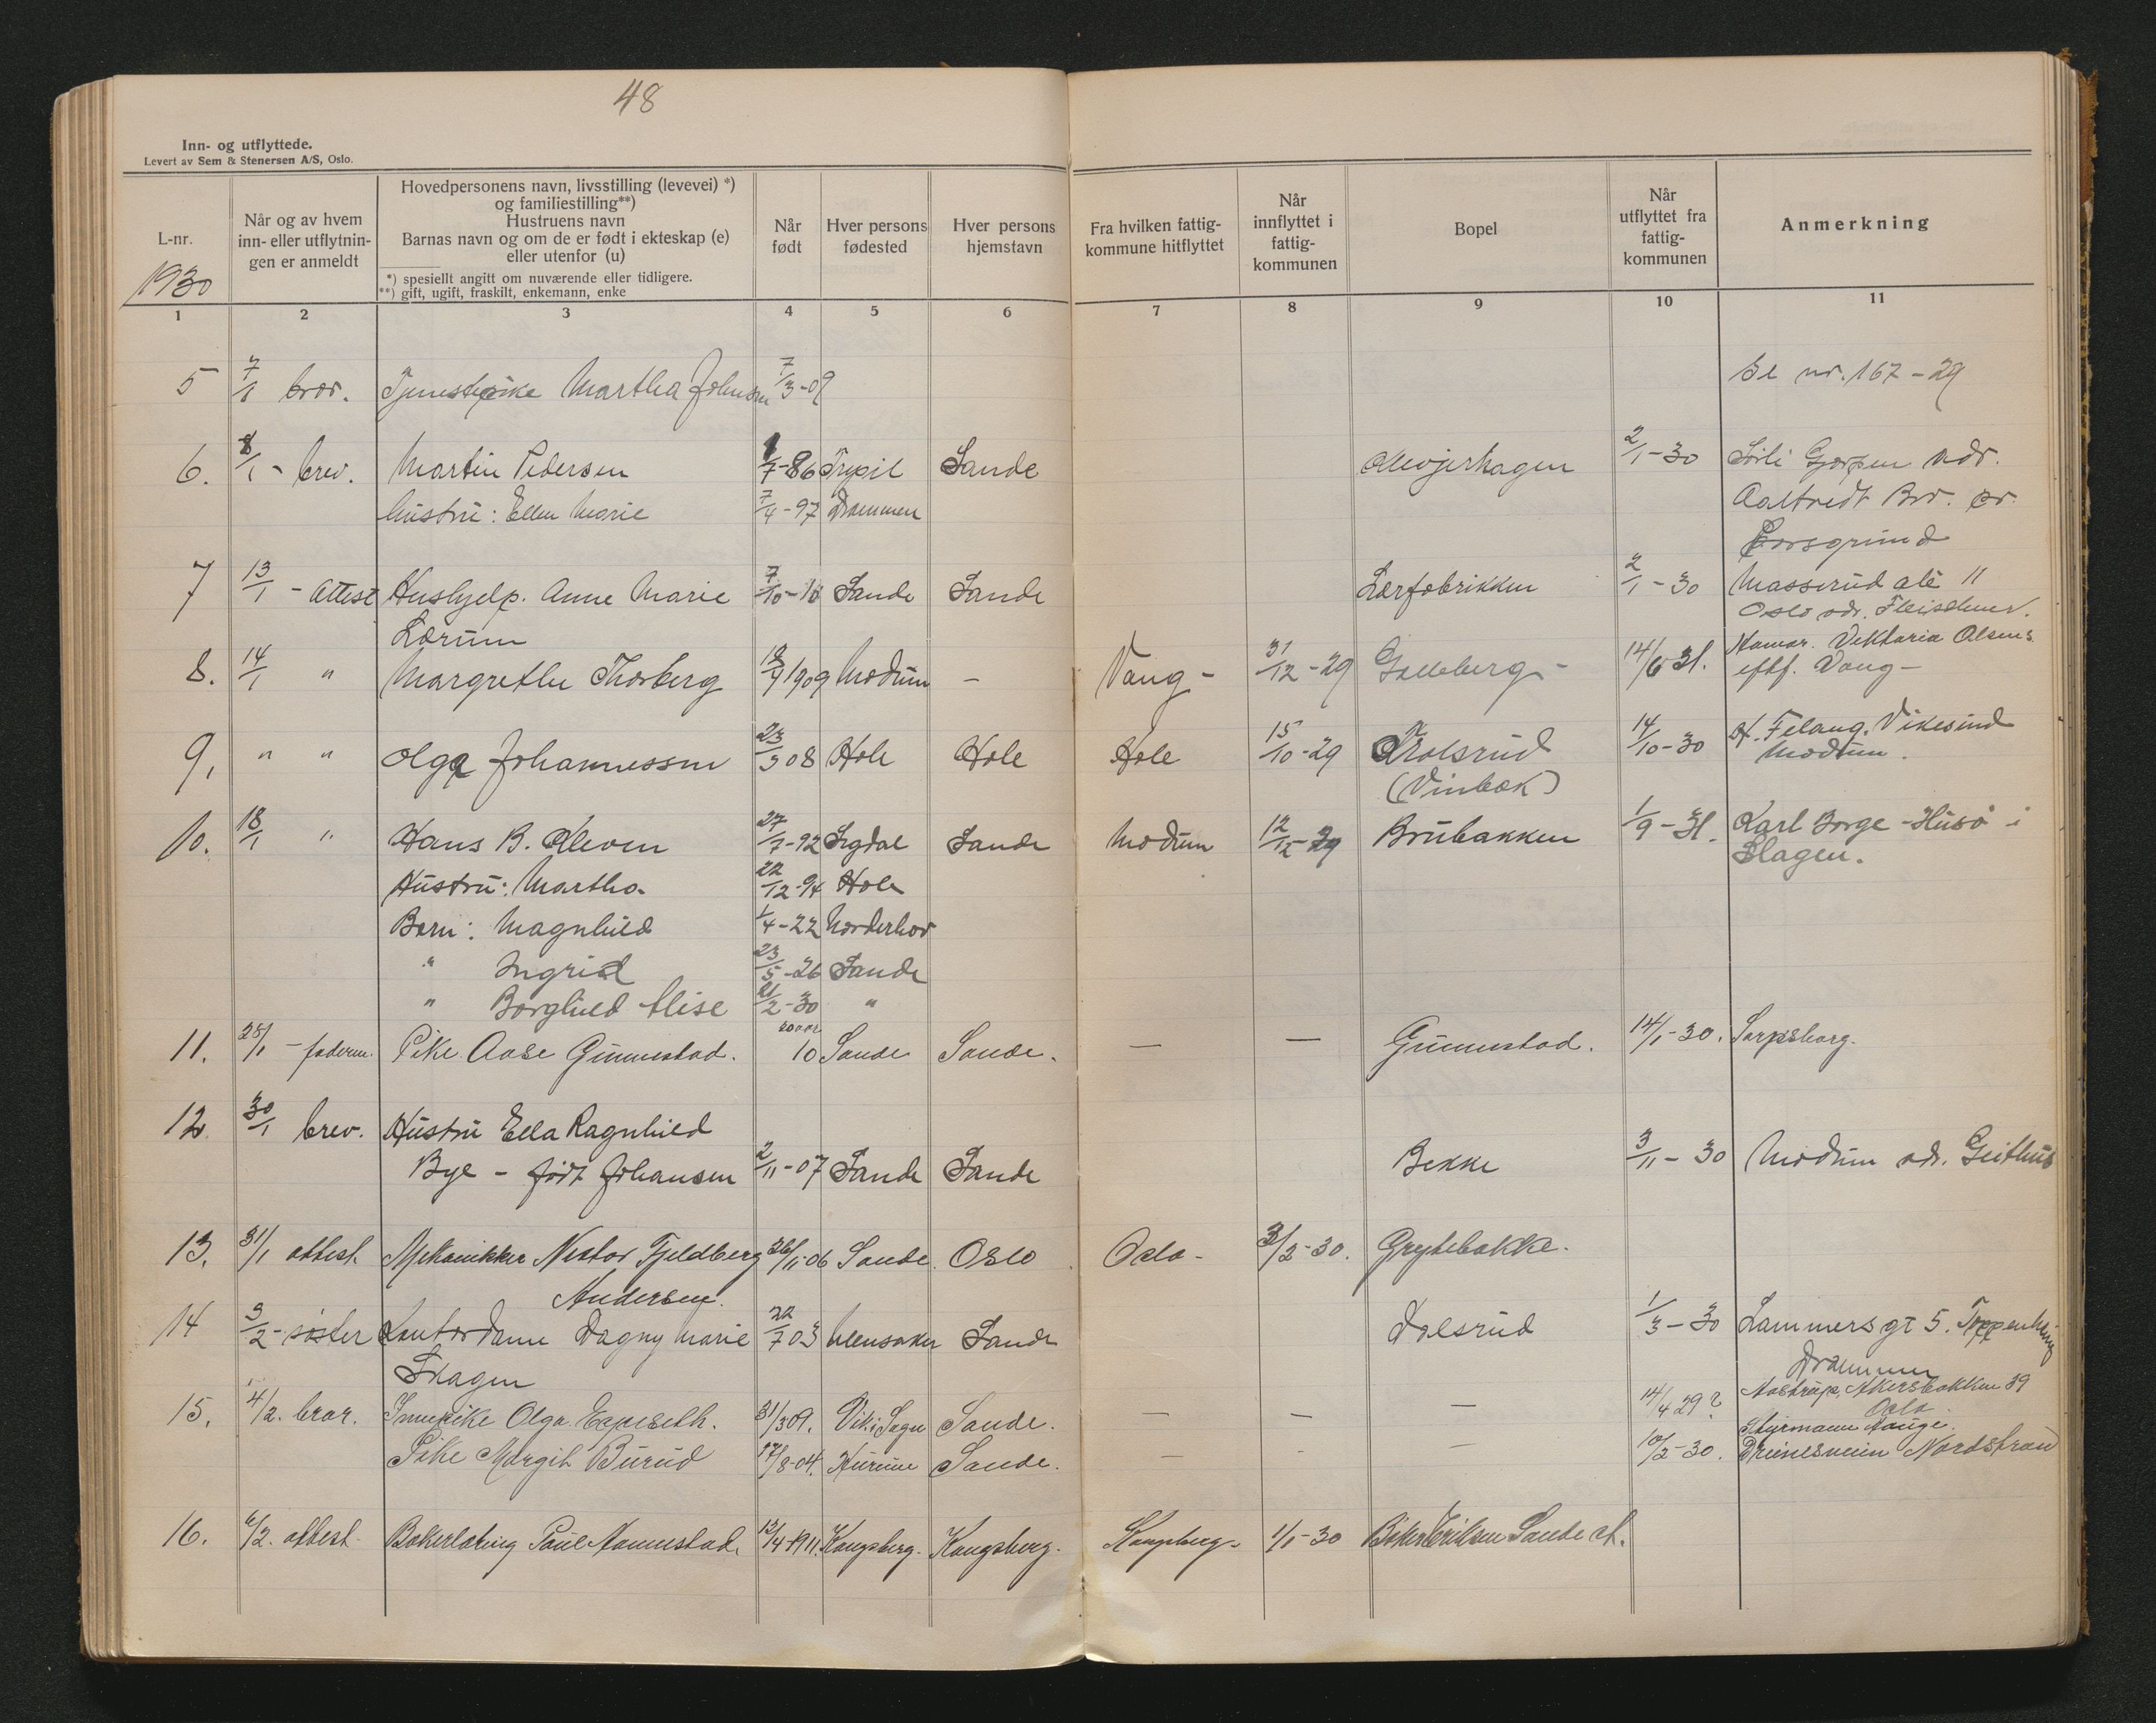 48
Inn- og utflyttede.
Levert av Sem & Stenersen A/S, Oslo.
L-nr.
1930
Når og av hvem
inn- eller utflytnin-
gen er anmeldt
Hovedpersonens navn, livsstilling (levevei) *)
og familiestilling**)
Hustruens navn
Barnas navn og om de er født i ekteskap (e)
eller utenfor (u)
*) spesiellt angitt om nuværende eller tidligere.
**) gift, ugift, fraskilt, enkemann, enke
Når
født
Hver persons
fødested
Hver persons
hjemstavn
Fra hvilken fattig-
kommune hitflyttet
Når
innflyttet i
fattig-
kommunen
Bopel
Når
utflyttet fra
fattig-
kommunen
Anmerkning
1 2 3 4 5 6 7 8 9 10 11
5 7/1 bror. Martha Johnsen 7/3-09 Se nr. 167-29
6. 8/1 - brev. Martin Pedersen 1/7-86 Trysil Sande 2/1-30 Gjerpen adr.
hustru: Ellen Marie 7/4-97 Drammen
Porsgrund
7 13/1 - Attest Hushjelp. Anne Marie 7/10-10 Sande Sande Lærfabrikken 2/1-30 Masserud alé 11
Lærum Oslo adr. Fleischner.
8. 14/1 " Margrethe Thorberg 1909 Modum - Vang - 31/12-29 Galleberg - 14/6 31. Hamar. Viktoria Olsens
eftf. Vang -
9, " " Olga Johannessen 23/3 08 Hole Hole Hole 15/10-29 14/10-30 Vikesund
(Vinbæk) Modum.
10. 18/1 " Hans B. Kleven 27/7-92 Sigdal Sande Modum 12/12-29 Brubakken 1/9-31. Karl Borge - Husø i
Slagen.
Hustru: Martha 22/12-94 Hole
Barn: Magnhild 1/4-22 Norderhov
" Ingrid 23/5-26 Sande
" Borghild Elise 21/2-30 "
11. 28/1 - faderen. Pike Aase Gunnestad. 10 Sande Sande. — — Gunnestad. 14/1-30. Sarpsborg.
12 30/1 brev. Hustru Ella Ragnhild
Bye - født Johansen 2/11-07 Sande Sande Bekke 3/11-30 Modum adr. Geithus
13. 31/1 attest. Mekanikker Nestor Fjeldberg 26/11-06 Sande. Oslo Oslo - 3/2-30. Grytebakke.
Andersen.
14 3/2 - søster Kontordame Dagny Marie 22/7 03 Sande Dalsrud 1/3-30 Lammers gt 5.
Skagen Drammen
15. 4/2. bror. Olga 31/3 09. Vik i Sogn Sande. — — — 14/4 29? Aastrup, Akersbakken 39
Oslo.
Pike Margit Burud 17/8-04. Hurum Sande. — - — 10/2-30. Styrmann Hauge.
Nordstrand
16. 6/2. attest. Bakerlærling Paul 13/4-1911. Kongsberg. Kongsberg. Kongsberg - 1/1-30 Baker Eriksen Sande st.